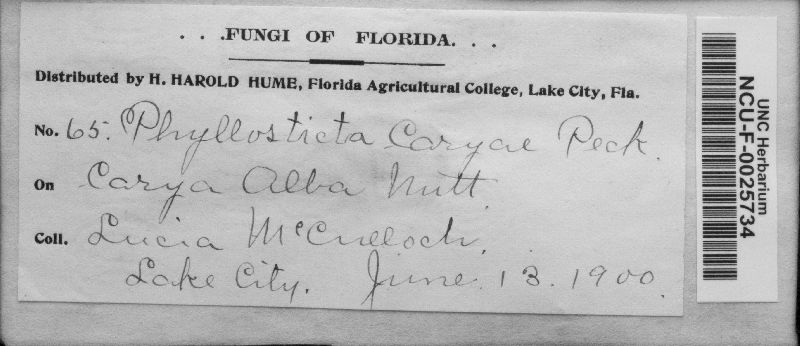 . . .FUNGI OF FLORIDA. . .
Distributed by H. HAROLD HUME, Florida Agricultural College, Lake City, Fla.
No. 65. Phyllosticta Caryae Peck.
On Carya Alba Nutt.
Coll. Lucia McCulloch.
Lake City. June 13. 1900.
UNC Herbarium
NCU-F-0025734